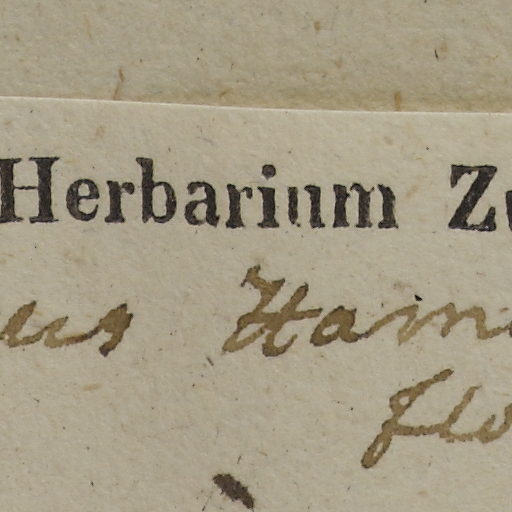 Herbarium Zu
us Ham
flo